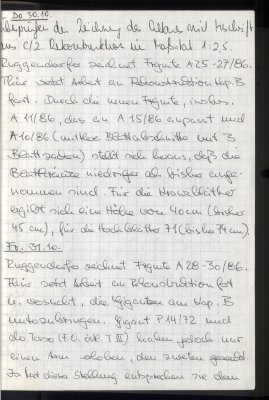 Do 30.10.
Überprüfen der Zeichnung der Cellare mit
aus C/2. Rekonstruktion im Maßstab 1:25.
Ruggendorfer zeichnet Frgmte A 25-27/86.
Thür setzt Arbeit an Rekonstruktion Kap. B
fort. Durch die neuen Frgmte, insbes.
A 11/86, das an A 15/86 anpasst und
A 10/86 (mittlere Blattabschnitte mit 3
Blattzacken) stellt sich heraus, daß die
Blattkränze niedriger als bisher ange-
nommen sind. Für die Hrowblätter
ergibt sich eine Höhe von 40cm (bisher
45 cm), für die Hochblätter 71 (bisher 74 cm).
Fr. 31.10.
Ruggendorfer zeichnet Frgmte A 28-30/86.
Thür setzt Arbeit an Rekonstruktion fort
u. versucht, die Giganten am Kap. B
unterzubringen. Gigant P 14/72 und
der Torso (F.O. Ostr. T III) haben jedoch nur
einen Arm erhoben, den zweiten gesenkt
Zu mit dieser Stellung entsprechen sie dem